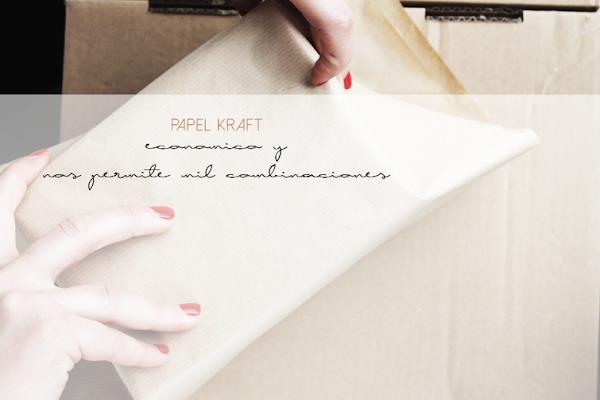 PAPEL KRAFT
economico y
nos permite mil combinaciones